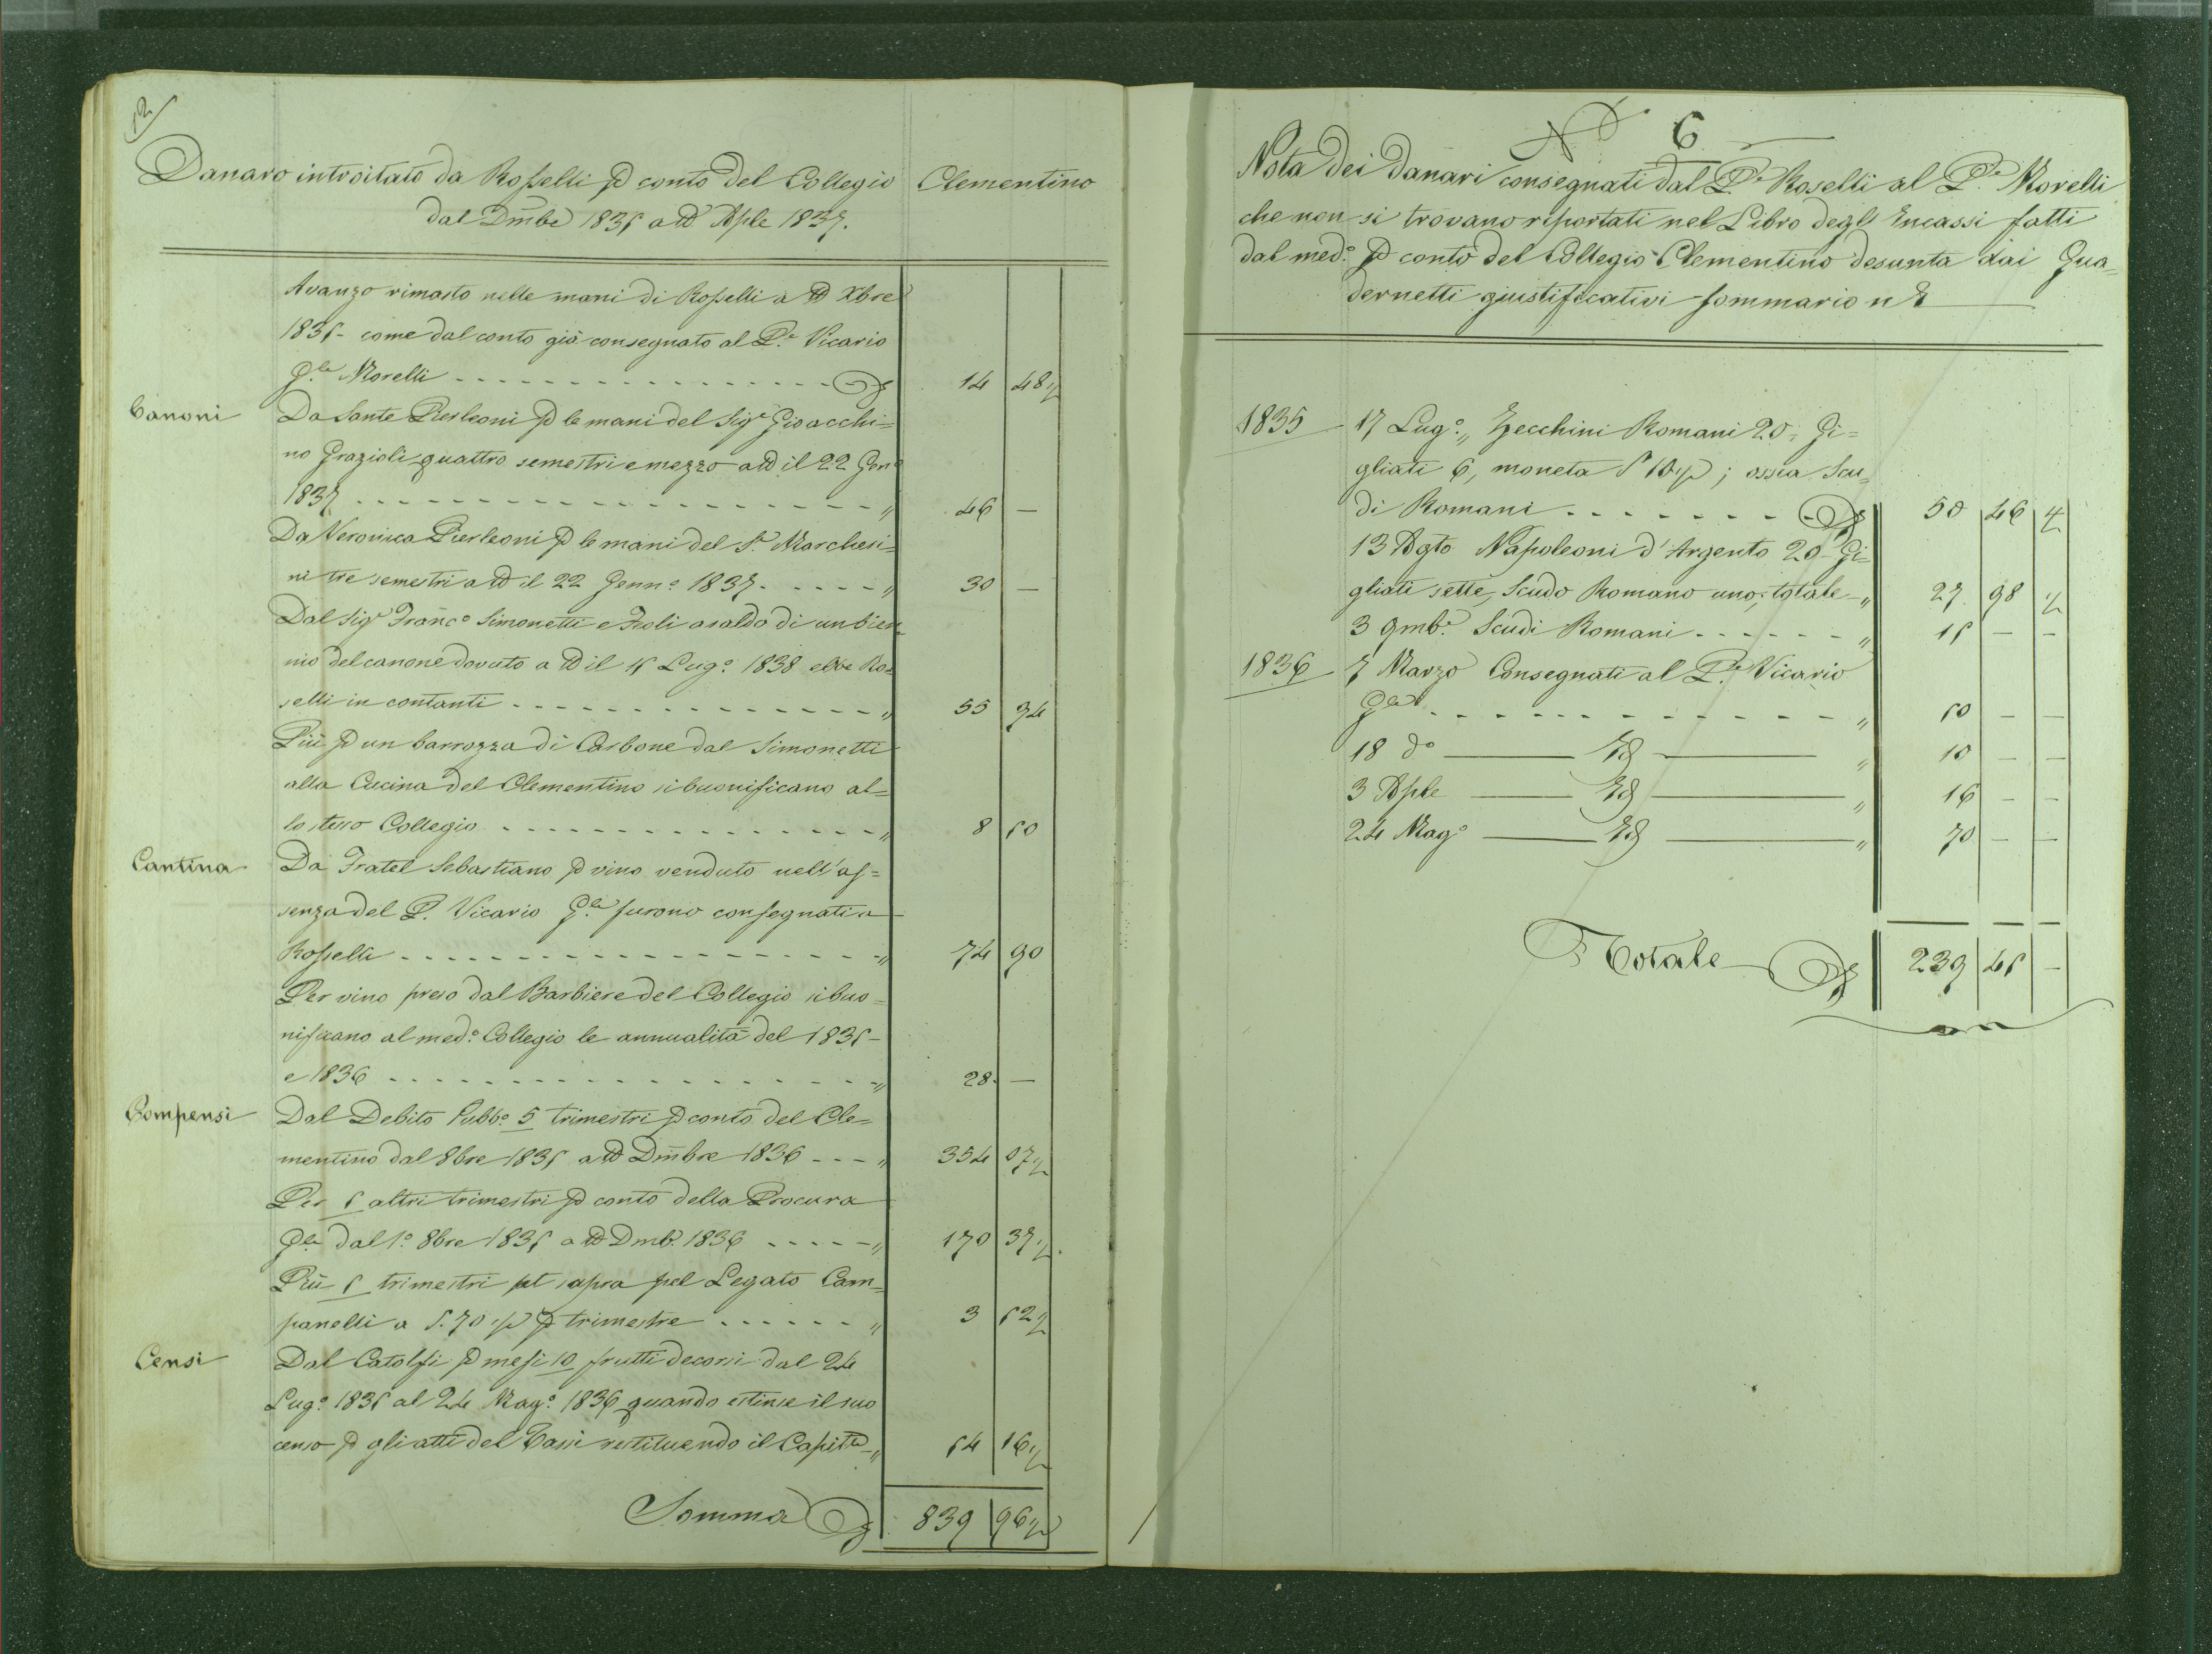 12
Danaro introitato da Rosselli p conto del Collegio Clementino
dal Dmbe 1835 a tt Aple 1837.
Avanzo rimasto nelle mani di Rosselli a tt Xbre
1835 - come dal conto già consegnato al P.e Vicario
G.le Morelli 14 48 ½
Canoni Da Sante Pierleoni p le mani del Sig.r Gioacchi=
no Grazioli quattro semestri e mezzo a tt il 22 Gen.o
1837 " 46 —
Da Veronica Pierleoni p le mani del S.r Marchesi=
ni tre semestri a tt il 22 Genn.o 1837 " 30 —
Dal Sig.r Franc.o Simonetti e Fioli a saldo di un bien=
nio del canone dovuto a tt il 15 Lug.o 1838 ebbe Ro=
selli in contanti " 55 94
Più p un barrozza di Carbone dal Simonetti
alla Cucina del Clementino si buonificano al=
lo stesso Collegio " 8 50
Cantina Da Fratel Sebastiano p vino venduto nell'as=
senza del P. Vicario G.le furono consegnati a
Rosselli " 74 90
Per vino preso dal Barbiere del Collegio si buo=
nificano al med.o Collegio le annualità del 1835 -
e 1836 " 28 —
Compensi Dal Debito Pubb.o 5 trimestri p conto del Cle=
mentino dal 8bre 1835 a tt Dmbre 1836 " 354 07 ½
Per 5 altri trimestri p conto della Procura
G.le dal 1.o 8bre 1835 a tt Dmb. 1836 " 170 37 ½
Più 5 trimestri pt sopra pel Legato Cam=
panelli a S. 70 ½ p trimestre " 3 52 ½
Censi Dal Catolfi p mesi 10 frutti decorsi dal 24
Lug.o 1835 al 24 Mag.o 1836 quando estinse il suo
censo p gli atti del Tassi restituendo il Capit.le " 54 16 ½
Somma 839 96 ½
N.o 6
Nota dei danari consegnati dal P.e Roselli al P.e Morelli
che non si trovano riportati nel Libro degl' Encassi fatti
dal med.o p conto del Collegio Clementino desunta dai Qua=
dernetti giustificativi sommario n 8
1835 17 Lug.o " Zecchini Romani 20, Gi=
gliati 6, moneta S 10 ½; ossia Scu=
di Romani 50 46 ½
13 Agto Napoleoni d'Argento 20 Gi=
gliati sette, Scudo Romano uno, totale " 27 98 ½
3 9mb.e Scudi Romani " 15 — —
1836 7 Marzo Consegnati al P.e Vicario
G.le " 50 — —
18 do Id " 10 — —
3 Aple Id " 16 — —
24 Mag.o Id " 70 — —
Totale 239 45 —